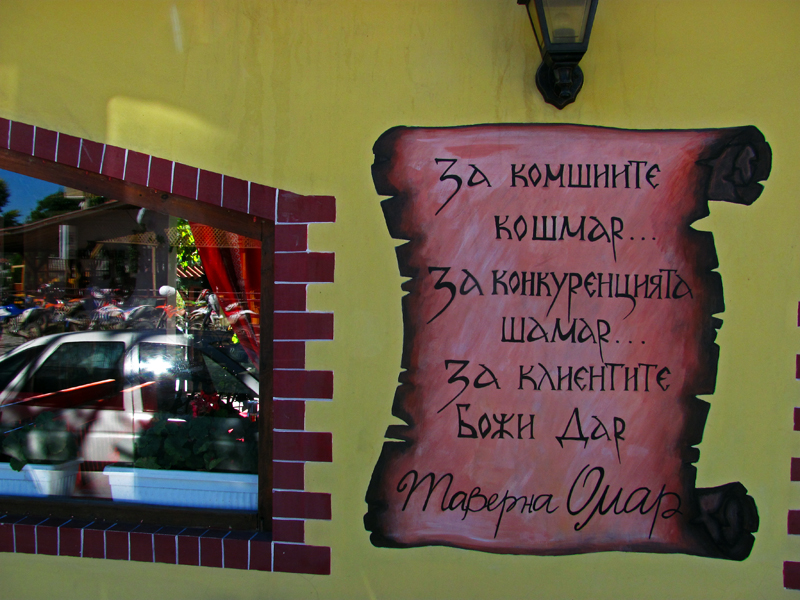 За комшиите
кошмар...
За конкуренцията
шамар...
За клиентите
Божи Дар
Таверна Омар